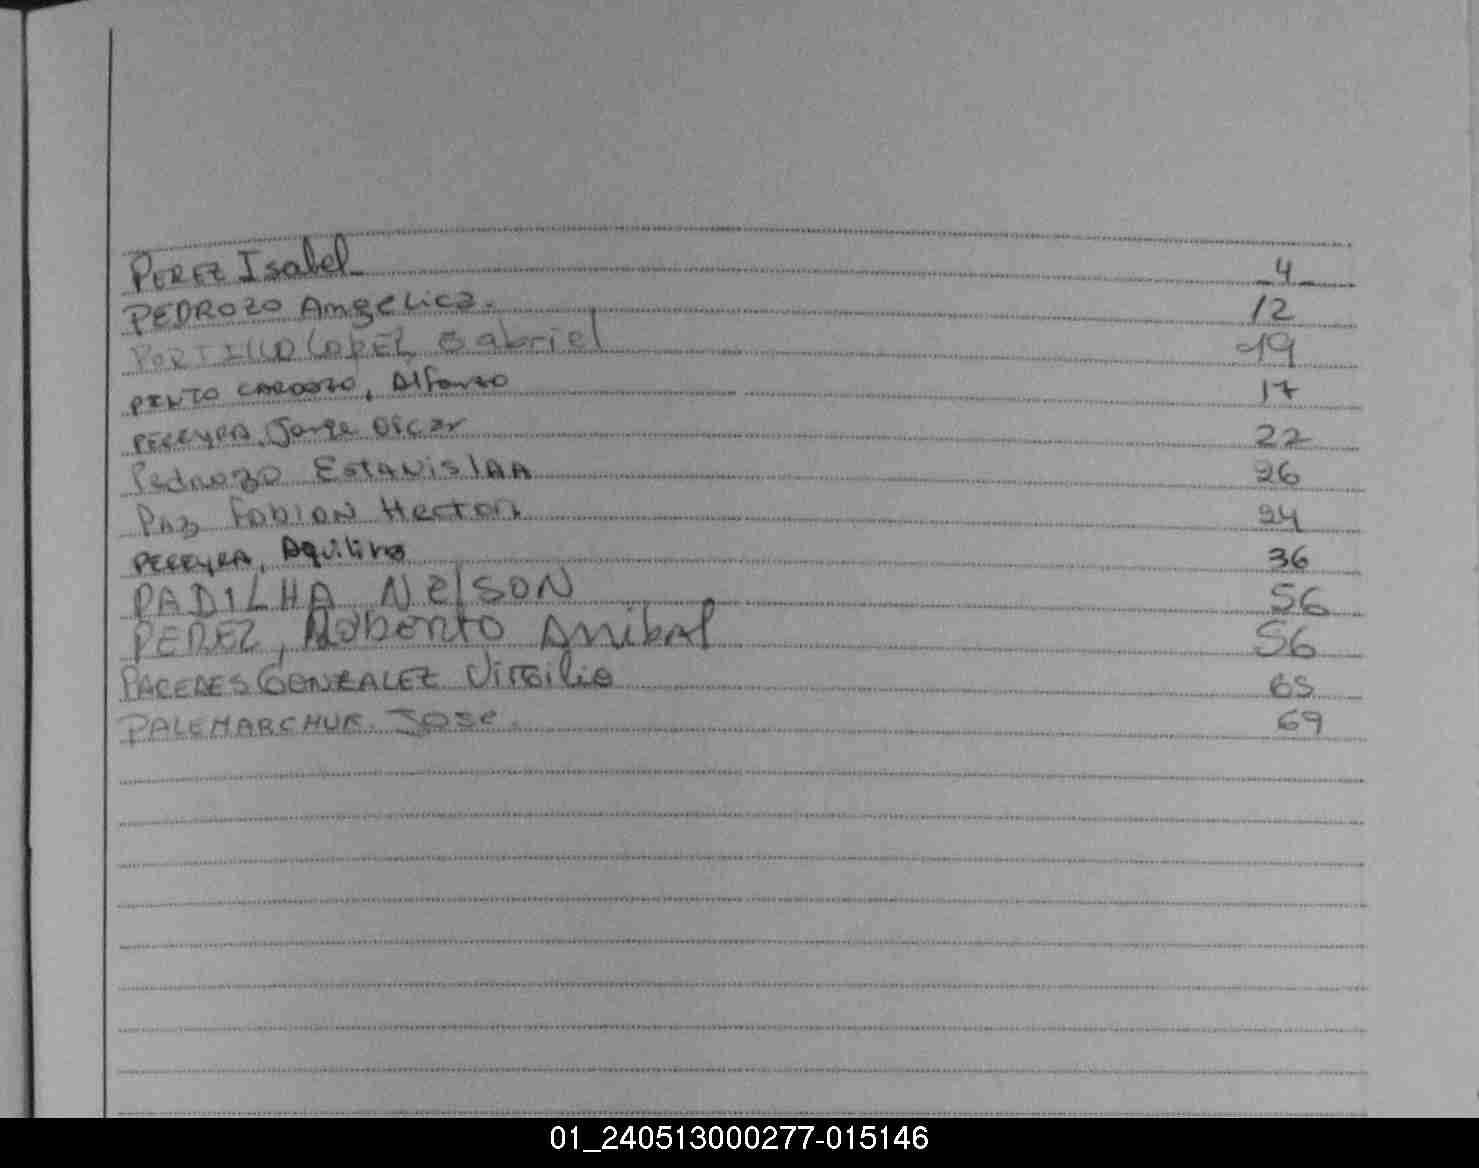 PEREZ Isabel 4
PEDROZO Angelica. 12
PORTILLO LOPEZ, Gabriel 19
PINTO CARDOZO, Alfonso 17
PEREYRA, Jorge Oscar 22
Pedrozo ESTANISLAA 26
PAZ FABIAN Hector 24
PEREYRA, Aquilino 36
PADILHA NelsON 56
PEREZ, Roberto Anibal 56
PACERES GONZALEZ Virgilio 65
PALEMARCHUK. Jose. 69
01_240513000277-015146